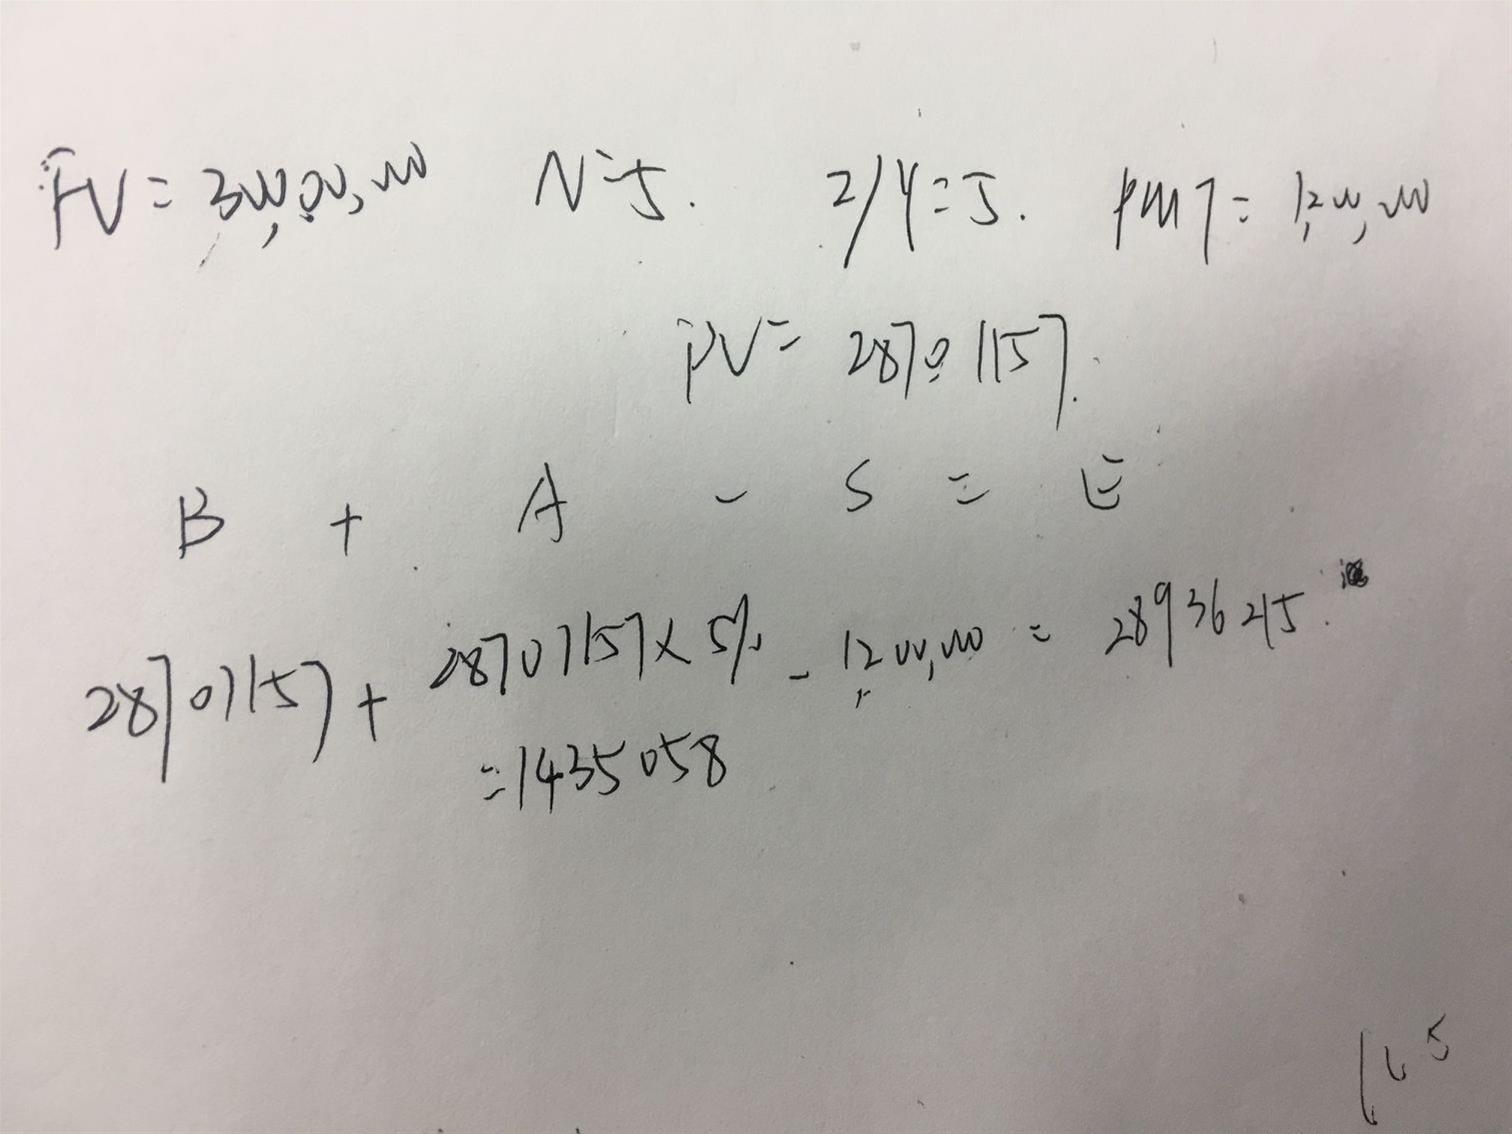 FV = 30,000,000 N=5. I/Y=5. PMT = 1,200,000
PV= 28701157.
B + A - S = E
28701157 + 28701157 x 5% - 1,200,000 = 28936215.
=1435058